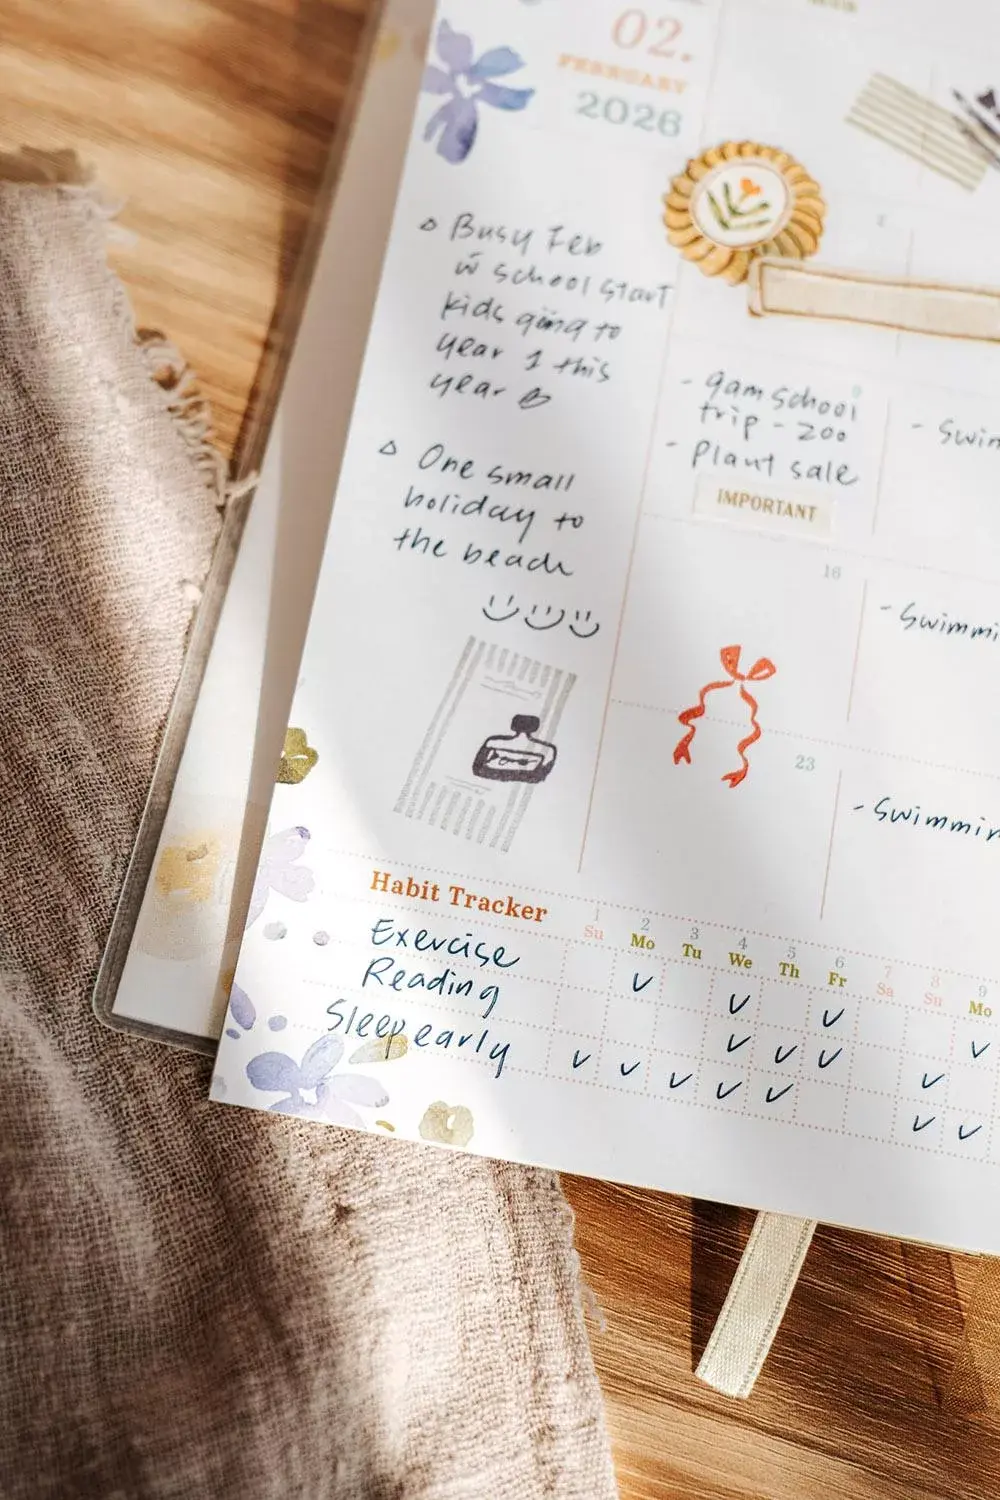 02.
FEBRUARY
2026
▵ Busy Feb
w school start
kids going to
year 1 this
year
▵ One small
holiday to
the beach
2
9
- 9am school
trip - zoo
- Plant sale
IMPORTANT
- Swim
16
- Swimmi
23
- Swimmin
Habit Tracker
1 2 3 4 5 6 7 8 9
Su Mo Tu We Th Fr Sa Su Mo
Exercise
Reading
Sleep early